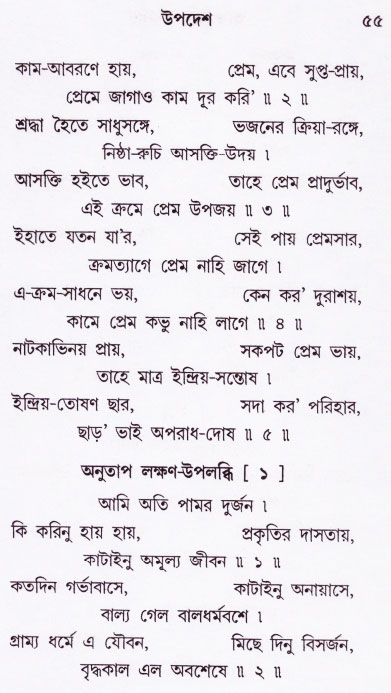 উপদেশ ৫৫
কাম-আবরণে হায়, প্রেম, এবে সুপ্ত-প্রায়,
প্রেমে জাগাও কাম দূর করি' ॥ ২ ॥
শ্রদ্ধা হৈতে সাধুসঙ্গে, ভজনের ক্রিয়া-রঙ্গে,
নিষ্ঠা-রুচি আসক্তি-উদয় ।
আসক্তি হইতে ভাব, তাহে প্রেম প্রাদুর্ভাব,
এই ক্রমে প্রেম উপজয় ॥ ৩ ॥
ইহাতে যতন যা'র, সেই পায় প্রেমসার,
ক্রমত্যাগে প্রেম নাহি জাগে ।
এ-ক্রম-সাধনে ভয়, কেন কর' দুরাশয়,
কামে প্রেম কভু নাহি লাগে ॥ ৪ ॥
নাটকাভিনয় প্রায়, সকপট প্রেম ভায়,
তাহে মাত্র ইন্দ্রিয়-সন্তোষ ।
ইন্দ্রিয়-তোষণ ছার, সদা কর' পরিহার,
ছাড়' ভাই অপরাধ-দোষ ॥ ৫ ॥
অনুতাপ লক্ষণ-উপলব্ধি [ ১ ]
আমি অতি পামর দুর্জন ।
কি করিনু হায় হায়, প্রকৃতির দাসতায়,
কাটাইনু অমূল্য জীবন ॥ ১ ॥
কতদিন গর্ভাবাসে, কাটাইনু অনায়াসে,
বাল্য গেল বালধর্মবশে ।
গ্রাম্য ধর্মে এ যৌবন, মিছে দিনু বিসর্জন,
বৃদ্ধকাল এল অবশেষে ॥ ২ ॥